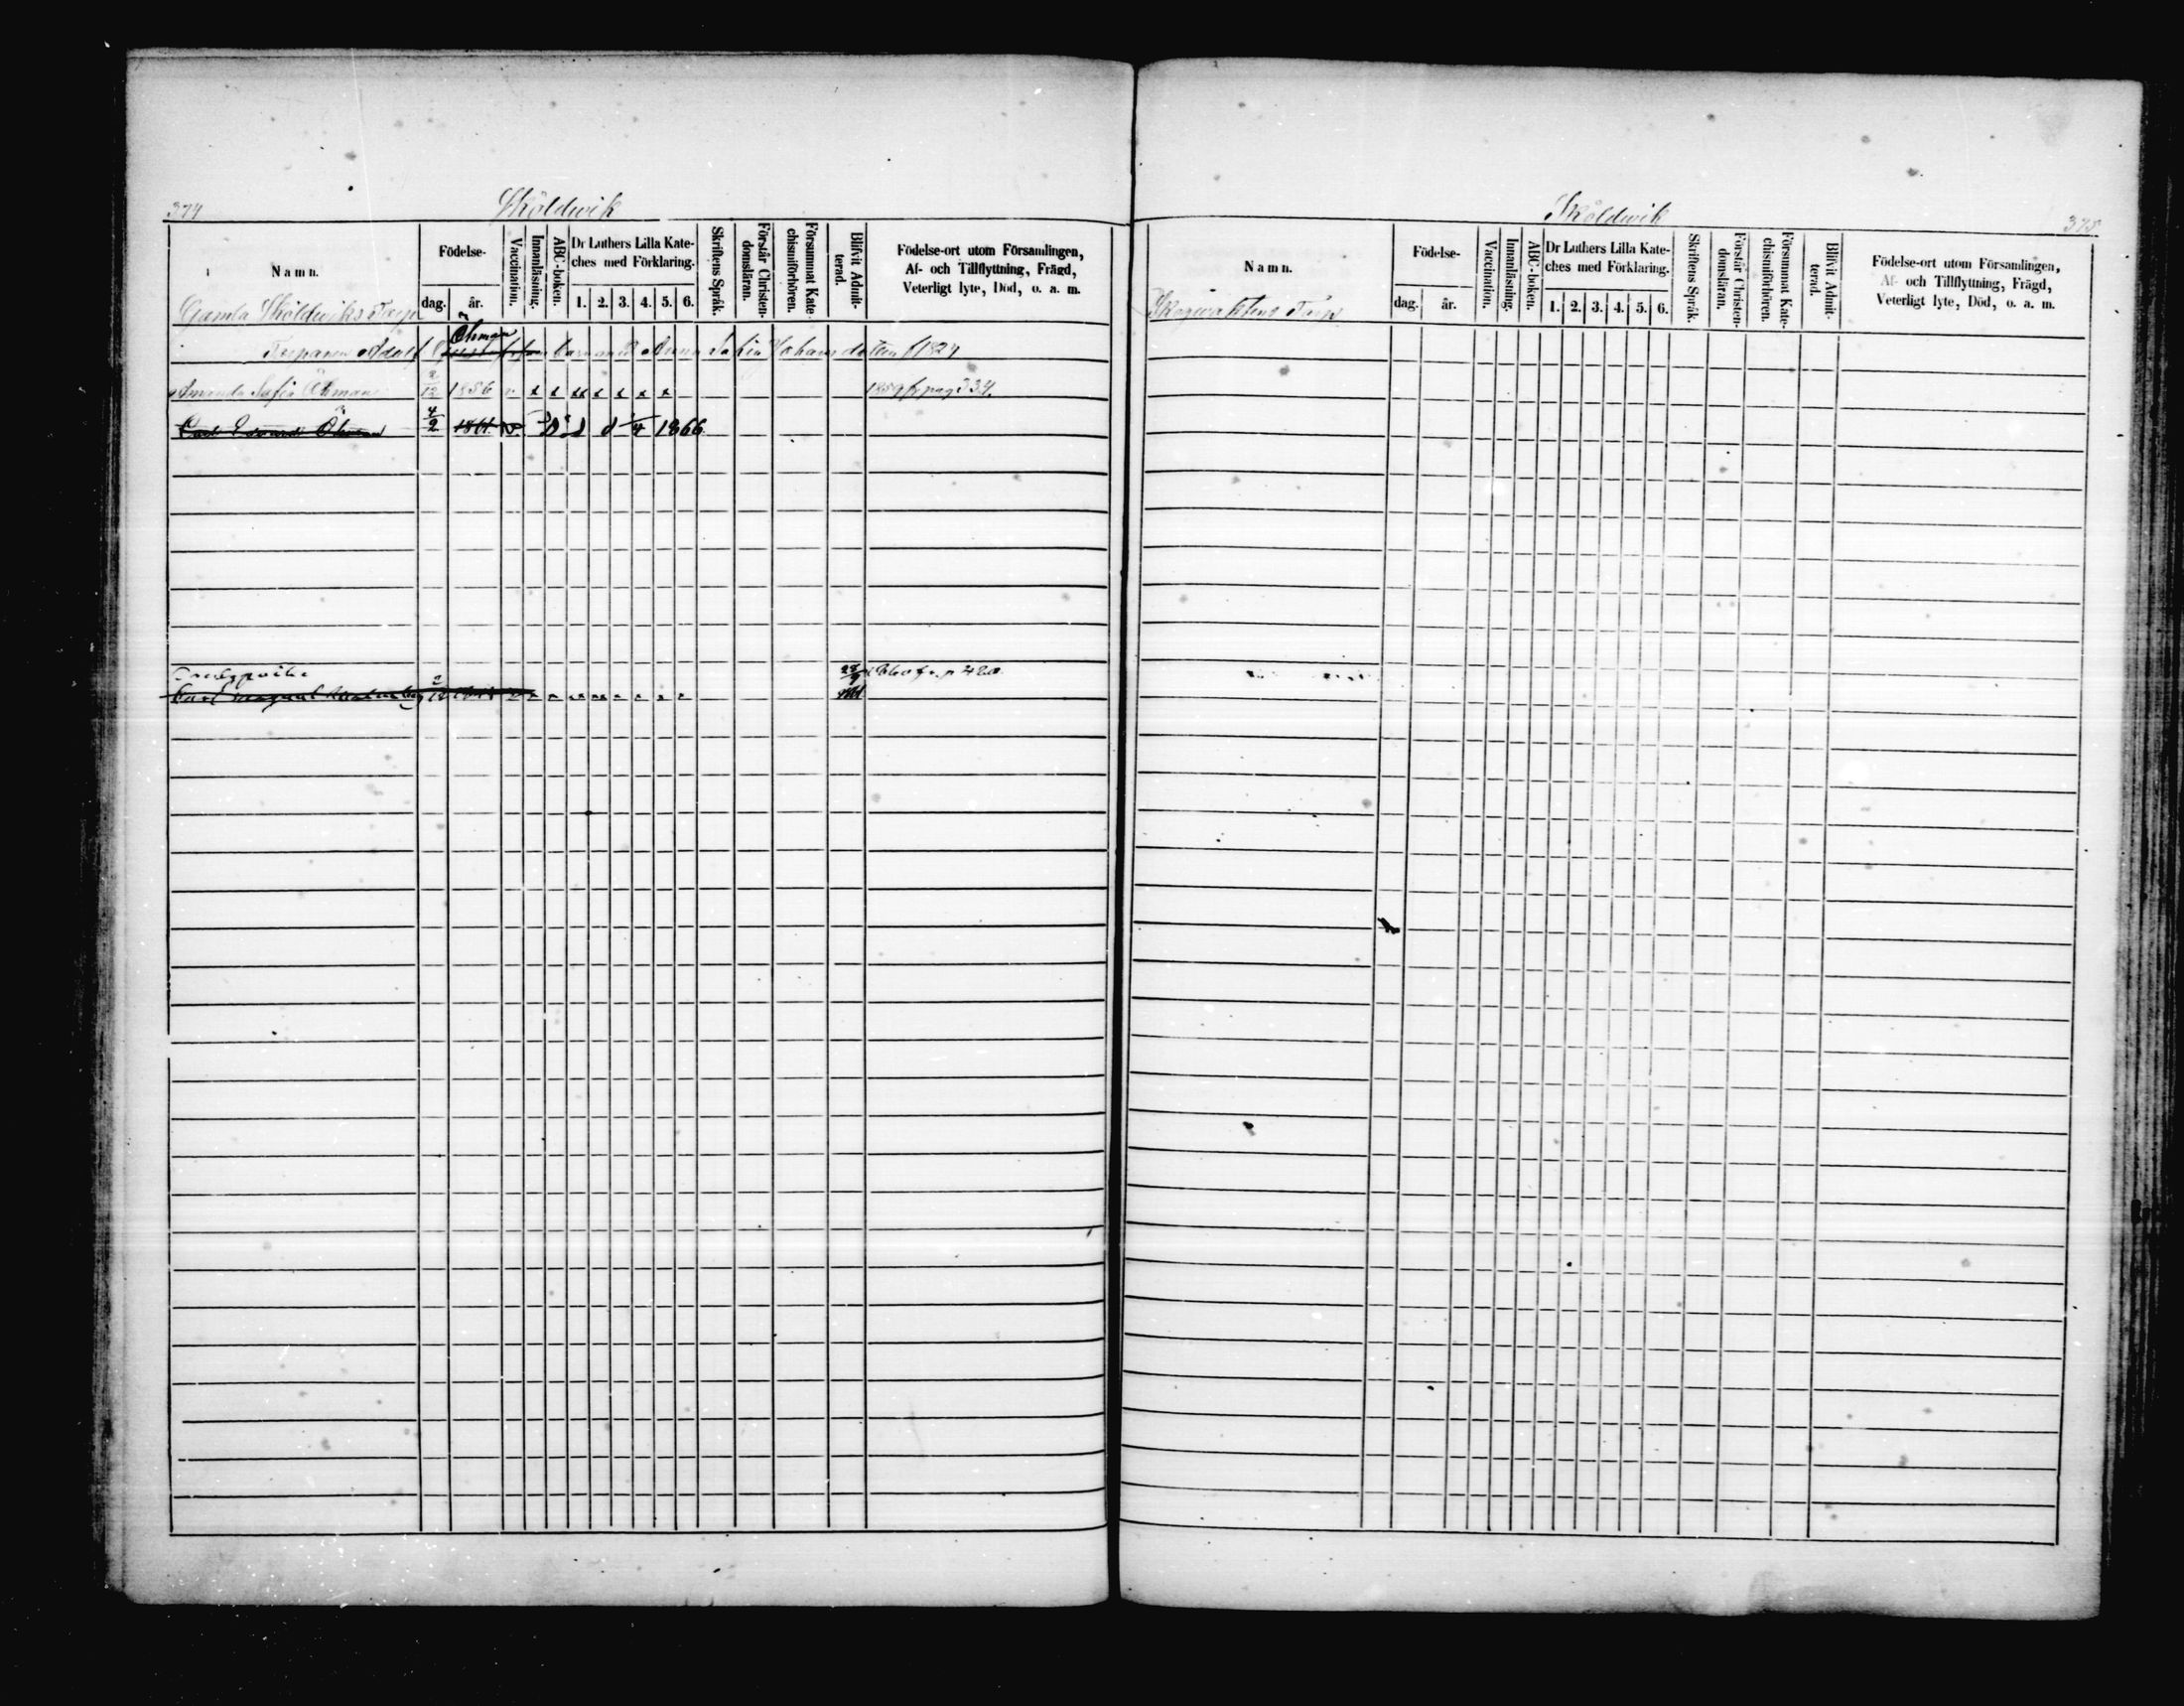 374
Sköldwik
Namn.
Födelse-
dag.
år.
Vaccination.
Innanläsning.
ABC-boken.
Dr Luthers Lilla Kate-
ches med Förklaring.
1. 2. 3. 4. 5. 6.
Skriftens Språk.
Förstår Christen-
domsläran.
Försummat Kate-
chismiförhören.
Blifvit Admit-
terad.
Födelse-ort utom Församlingen,
Af- och Tillflyttning, Frägd,
Veterligt lyte, Död, o. a. m.
Gamla Sköldwiks Torp
Öhman
Torparen Adolf Barn med Anna Sofia Johansdotter f 1824
Amanda Sofia Öhman 2/12 1856 v x x xx x x x x 1859 fr pag 334.
Carl Edvard Öhman 4/2 1861 v Död d 4 1866
22/9 fr. p 420
Carl Magnus 2/12
Sköldwik
375
Namn.
Födelse-
dag.
år.
Vaccination.
Innanläsning.
ABC-boken.
Dr Luthers Lilla Kate-
ches med Förklaring.
1. 2. 3. 4. 5. 6.
Skriftens Språk.
Förstår Christen-
domsläran.
Försummat Kate-
chismiförhören.
Blifvit Admit-
terad.
Födelse-ort utom Församlingen,
Af- och Tillflyttning, Frägd,
Veterligt lyte, Död, o. a. m.
Skogwaktens Torp